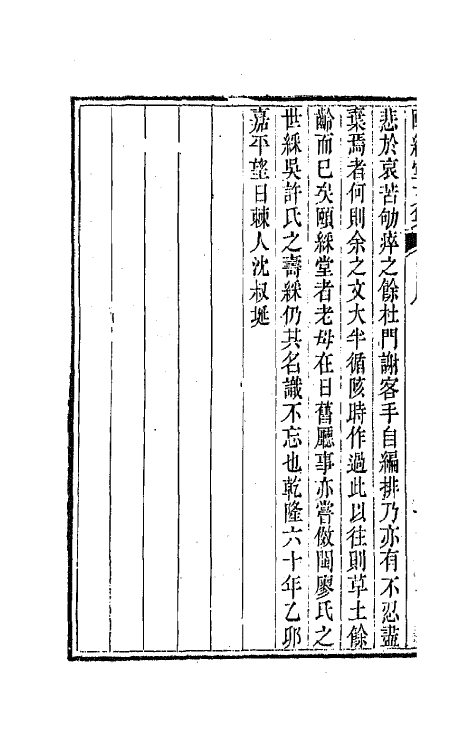 悲於哀苦劬瘁之餘杜門謝客手自編排乃亦有不忍盡
棄焉者何則余之文大半循陔時作過此以往則草土餘
齡而已矣頤綵堂者老母在日舊廳事亦嘗倣閩廖氏之
世綵吳許氏之壽綵仍其名識不忘也乾隆六十年乙卯
嘉平望日棘人沈叔埏